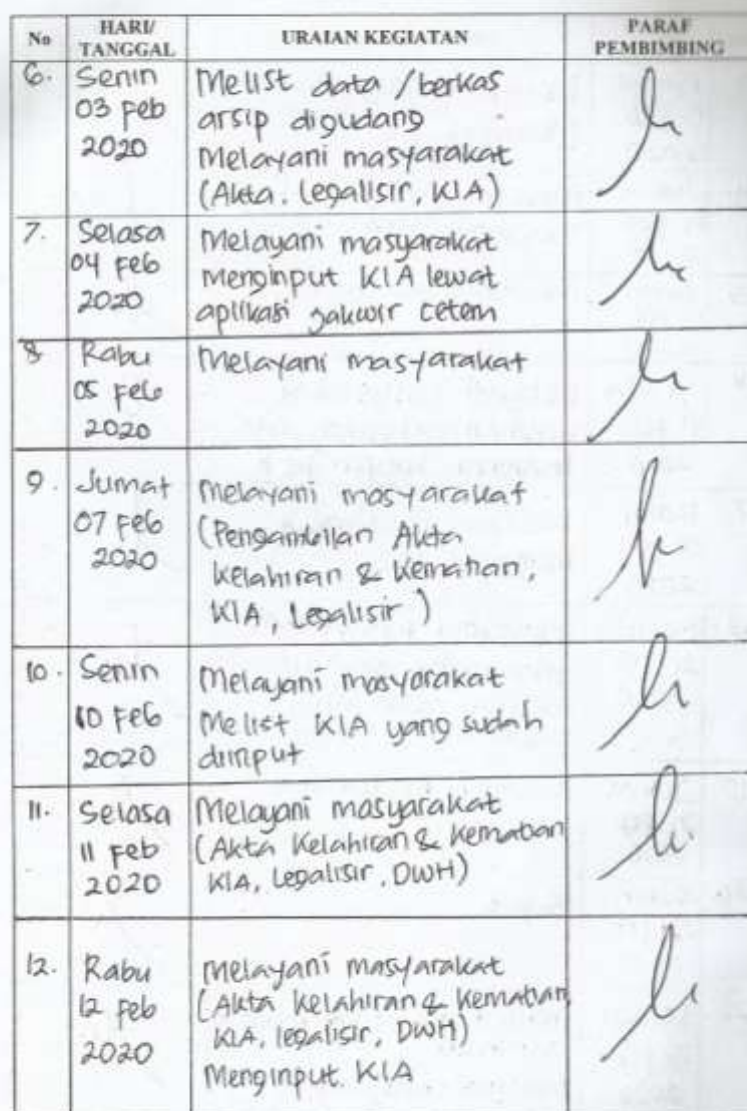 No HARI/ TANGGAL URAIAN KEGIATAN PARAF PEMBIMBING
6. Senin 03 Feb 2020
Melist data / berkas
arsip digudang
Melayani masyarakat
(Akta, Legalisir, KIA)
7. Selasa 04 Feb 2020
Melayani masyarakat
menginput KIA lewat
aplikasi cetem
8 Rabu 05 Feb 2020
Melayani masyarakat
9. Jumat 07 Feb 2020
Melayani masyarakat
(Pengambilan Akta
Kelahiran & Kematian,
KIA, Legalisir)
10. Senin 10 Feb 2020
Melayani masyarakat
Melist KIA yang sudah
diinput
11. Selasa 11 Feb 2020
Melayani masyarakat
(Akta Kelahiran & Kematian
KIA, Legalisir, DWH)
12. Rabu 12 Feb 2020
Melayani masyarakat
(Akta Kelahiran & Kematian,
KIA, legalisir, DWH)
Menginput KIA